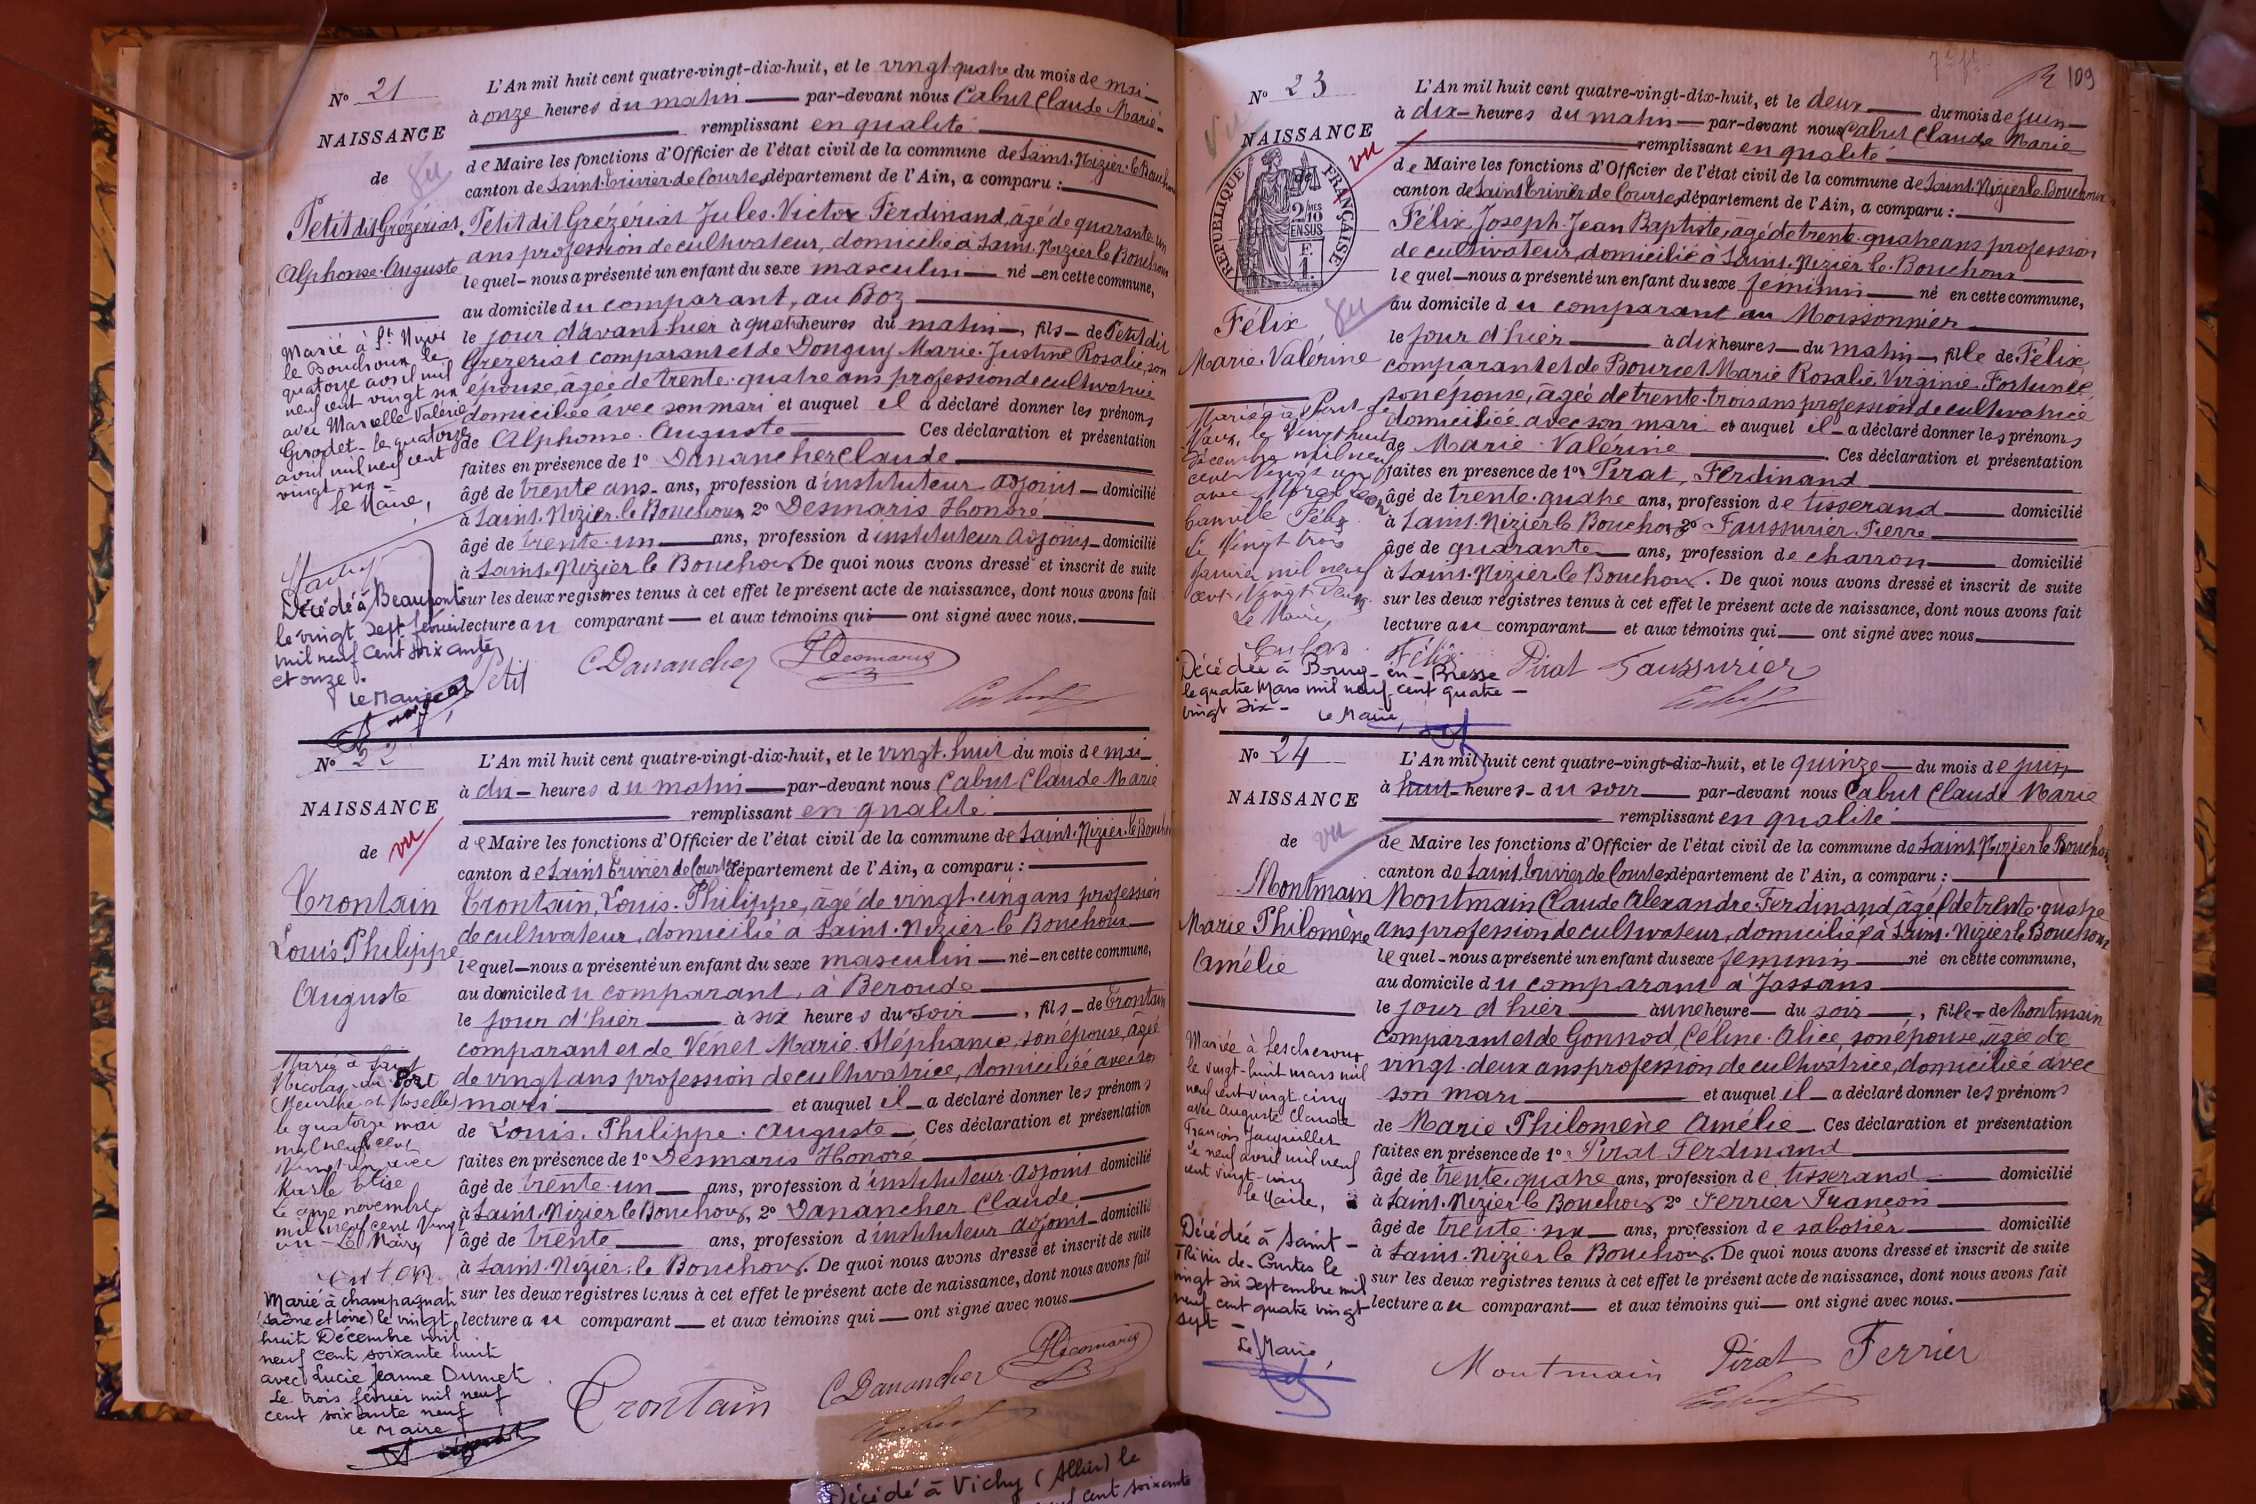 N° 21
NAISSANCE
de
vu
Petit dit Grézériat
Alphonse Auguste
Marié à St Nizier
le Bouchoux le
quatorze avril mil
neuf cent vingt six
avec Marcelle Valérie
Girodet - le quatorze
avril mil neuf cent
vingt six -
le Maire,
Décédé à Beaupont
le vingt sept février
mil neuf cent soixante
et onze.
le Maire
L'An mil huit cent quatre-vingt-dix-huit, et le vingt-quatre du mois de mai
à onze heures du matin par-devant nous Cabut Claude Marie
remplissant en qualité
de Maire les fonctions d'Officier de l'état civil de la commune de Saint-Nizier-le-Bouchoux
canton de Saint-Trivier de Courtes, département de l'Ain, a comparu :
Petit dit Grézériat Jules Victor Ferdinand, âgé de quarante un
ans profession de cultivateur, domicilié à Saint-Nizier le Bouchoux
lequel nous a présenté un enfant du sexe masculin né en cette commune,
au domicile du comparant, au Boz
le jour d'avant hier à quatre heures du matin, fils de Petit dit
Grézériat comparant et de Donguy Marie Justine Rosalie, son
épouse, âgée de trente-quatre ans profession de cultivatrice
domiciliée avec son mari et auquel il a déclaré donner les prénoms
de Alphonse Auguste Ces déclaration et présentation
faites en présence de 1° Danancher Claude
âgé de trente ans ans, profession d'instituteur adjoint domicilié
à Saint-Nizier-le Bouchoux 2° Desmaris Honoré
âgé de trente-un ans, profession d'instituteur adjoint domicilié
à Saint-Nizier le Bouchoux De quoi nous avons dressé et inscrit de suite
sur les deux registres tenus à cet effet le présent acte de naissance, dont nous avons fait
lecture au comparant et aux témoins qui ont signé avec nous.
Petit C Danancher HDesmaris
Cabut
N° 22
NAISSANCE
de
vu
Trontain
Louis Philippe
Auguste
Marié à Saint
Nicolas du Port
(Meurthe et Moselle)
le quatorze mai
mil neuf cent
vingt un avec
Elise
le onze novembre
mil neuf cent vingt
un - Le Maire
Marié à Champagnat
(Saône et Loire) le vingt
huit Décembre mil
neuf cent soixante huit
avec Lucie Jeanne Dumet
Le trois février mil neuf
cent soixante neuf
le Maire
L'An mil huit cent quatre-vingt-dix-huit, et le vingt-huit du mois de mai
à dix heures du matin par-devant nous Cabut Claude Marie
remplissant en qualité
de Maire les fonctions d'Officier de l'état civil de la commune de Saint-Nizier-le-Bouchoux
canton de Saint Trivier de Courtes département de l'Ain, a comparu :
Trontain, Louis-Philippe, âgé de vingt-cinq ans profession
de cultivateur, domicilié à Saint-Nizier-le Bouchoux
lequel nous a présenté un enfant du sexe masculin né en cette commune,
au domicile du comparant, à Beroude
le jour d'hier à six heures du soir, fils de Trontain
comparant et de Venet Marie Stéphanie, son épouse, âgée
de vingt ans profession de cultivatrice, domiciliée avec son
mari et auquel il a déclaré donner les prénoms
de Louis-Philippe-Auguste. Ces déclaration et présentation
faites en présence de 1° Desmaris Honoré
âgé de trente-un ans, profession d'instituteur adjoint domicilié
à Saint-Nizier le Bouchoux, 2° Danancher Claude
âgé de trente ans, profession d'instituteur adjoint domicilié
à Saint-Nizier-le Bouchoux. De quoi nous avons dressé et inscrit de suite
sur les deux registres tenus à cet effet le présent acte de naissance, dont nous avons fait
lecture au comparant et aux témoins qui ont signé avec nous.
Trontain C Danancher HDesmaris
Cabut
Décédé à Vichy (Allier) le
cent soixante
109
N° 23
NAISSANCE
vu
RÉPUBLIQUE FRANÇAISE
2/10 MES
EN SUS
F.
1
Félix
Marie Valérine
Mariée à
Vaux, le vingt huit
décembre mil neuf
cent vingt un
avec Morel Léon
Camille Félix
le vingt trois
janvier mil neuf
cent vingt deux
Le Maire,
Décédée à Bourg-en-Bresse
le quatre Mars mil neuf cent quatre
vingt dix -
Le Maire,
L'An mil huit cent quatre-vingt-dix-huit, et le deux du mois de juin
à dix heures du matin par-devant nous Cabut Claude Marie
remplissant en qualité
de Maire les fonctions d'Officier de l'état civil de la commune de Saint-Nizier le Bouchoux
canton de Saint Trivier de Courtes, département de l'Ain, a comparu :
Félix Joseph Jean Baptiste, âgé de trente-quatre ans profession
de cultivateur, domicilié à Saint-Nizier-le-Bouchoux
lequel nous a présenté un enfant du sexe féminin né en cette commune,
au domicile du comparant au Moissonnier
le jour d'hier à dix heures du matin, fille de Félix,
comparant et de Bourcet Marie Rosalie Virginie Fortunée
son épouse, âgée de trente-trois ans profession de cultivatrice
domiciliée avec son mari et auquel il a déclaré donner les prénoms
de Marie-Valérine Ces déclaration et présentation
faites en présence de 1° Pirat, Ferdinand
âgé de trente-quatre ans, profession de tisserand domicilié
à Saint-Nizier le Bouchoux 2° Faussurier Pierre
âgé de quarante ans, profession de charron domicilié
à Saint-Nizier le Bouchoux. De quoi nous avons dressé et inscrit de suite
sur les deux registres tenus à cet effet le présent acte de naissance, dont nous avons fait
lecture au comparant et aux témoins qui ont signé avec nous.
Félix Pirat Faussurier
Cabut
N° 24
NAISSANCE
de
vu
Montmain
Marie Philomène
Amélie
Mariée à Lescheroux
le vingt-huit mars mil
neuf cent vingt cinq
avec Auguste Claude
François Jacquillet
Le neuf avril mil neuf
cent vingt-cinq
le Maire,
Décédée à Saint-
Trivier-de-Courtes le
vingt six Septembre mil
neuf cent quatre vingt
sept -
Le Maire,
L'An mil huit cent quatre-vingt-dix-huit, et le quinze du mois de juin
à huit heures du soir par-devant nous Cabut Claude Marie
remplissant en qualité
de Maire les fonctions d'Officier de l'état civil de la commune de Saint-Nizier le Bouchoux
canton de Saint Trivier de Courtes département de l'Ain, a comparu :
Montmain Claude Alexandre Ferdinand, âgé de trente-quatre
ans profession de cultivateur, domicilié à Saint-Nizier le Bouchoux
lequel nous a présenté un enfant du sexe féminin né en cette commune,
au domicile du comparant à Jassans
le jour d'hier à une heure du soir, fille de Montmain
comparant et de Gonnod, Céline-Alice, son épouse, âgée de
vingt-deux ans profession de cultivatrice, domiciliée avec
son mari et auquel il a déclaré donner les prénoms
de Marie Philomène Amélie. Ces déclaration et présentation
faites en présence de 1° Pirat Ferdinand
âgé de trente-quatre ans, profession de tisserand domicilié
à Saint-Nizier le Bouchoux 2° Ferrier François
âgé de trente-six ans, profession de sabotier domicilié
à Saint-Nizier le Bouchoux. De quoi nous avons dressé et inscrit de suite
sur les deux registres tenus à cet effet le présent acte de naissance, dont nous avons fait
lecture au comparant et aux témoins qui ont signé avec nous.
Montmain Pirat Ferrier
Cabut